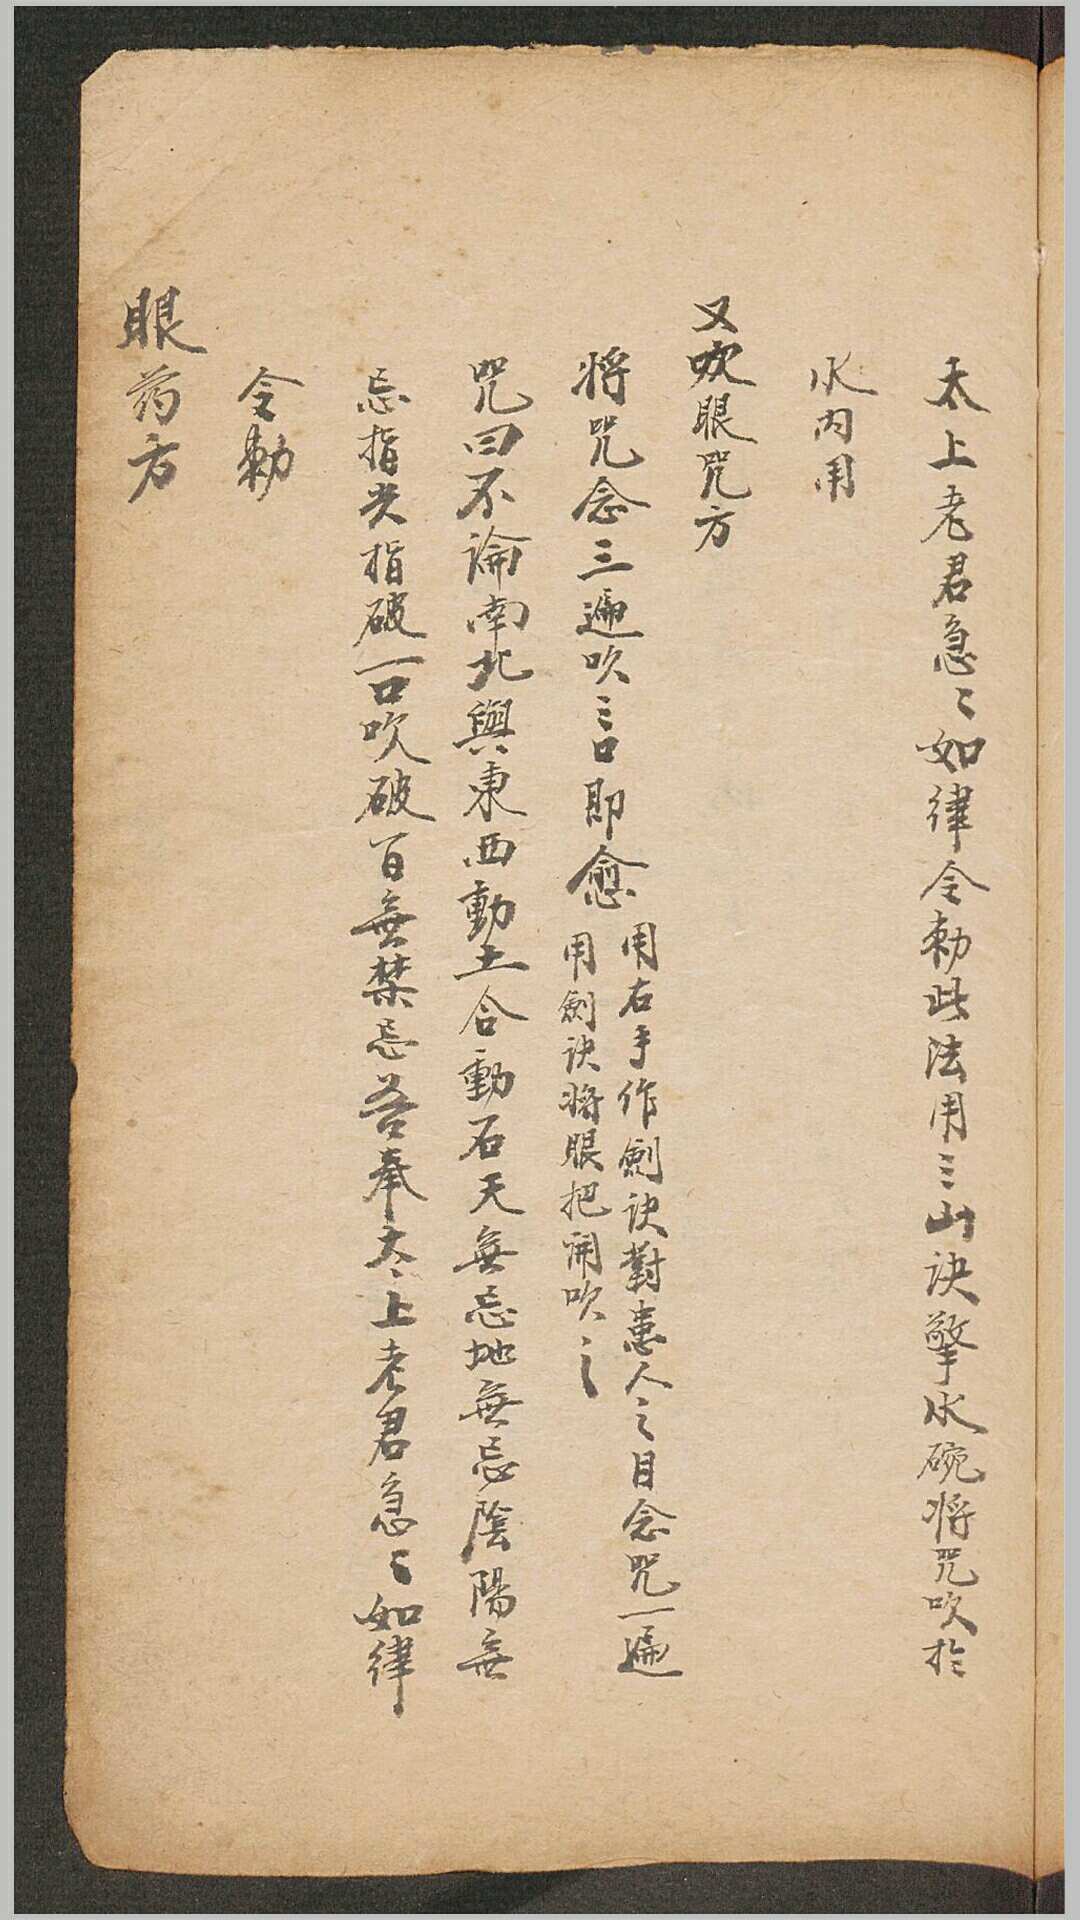 太上老君急〻如律令勅此法用三山訣擎水碗将咒吹於
水内用
又吹眼咒方
将咒念三遍吹三口即愈
用右手作劍訣對患人之目念咒一遍
用劍訣将眼把開吹之
咒曰不論南北與東西動土合動石天無忌地無忌陰陽無
忌指尖指破一口吹破百無禁忌吾奉太上老君急〻如律
令勅
眼药方